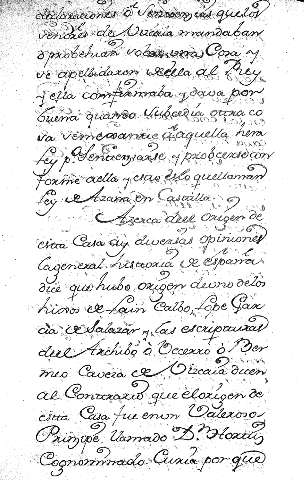 declaraciones o Sentencias que los
de Vizcaia mandaban
o probehian sobre una Cosa y
se apelaba al Rey
y ella confirmaba y dava por
buena quando subcedia otra co
sa semexante aquella hera
ley pª Sentenciarse y probceer con
forme a ella y esto es lo que llaman
ley de Azaña en Castilla.
Azerca deel origen de
esta Casa ay diversas opiniones
la general historia de España
dice que hubo origen de uno de los
hixos de Lain Calbo, Lope Gar
zia de Salazar y las escripturas
deel Archibo o Becerro o Ber
meo Cavera de Vizcaia dicen
al Contrario que el origen de
esta Casa fue en un Valeroso
Prinzipe llamado Dn
Cognominado Curia porque